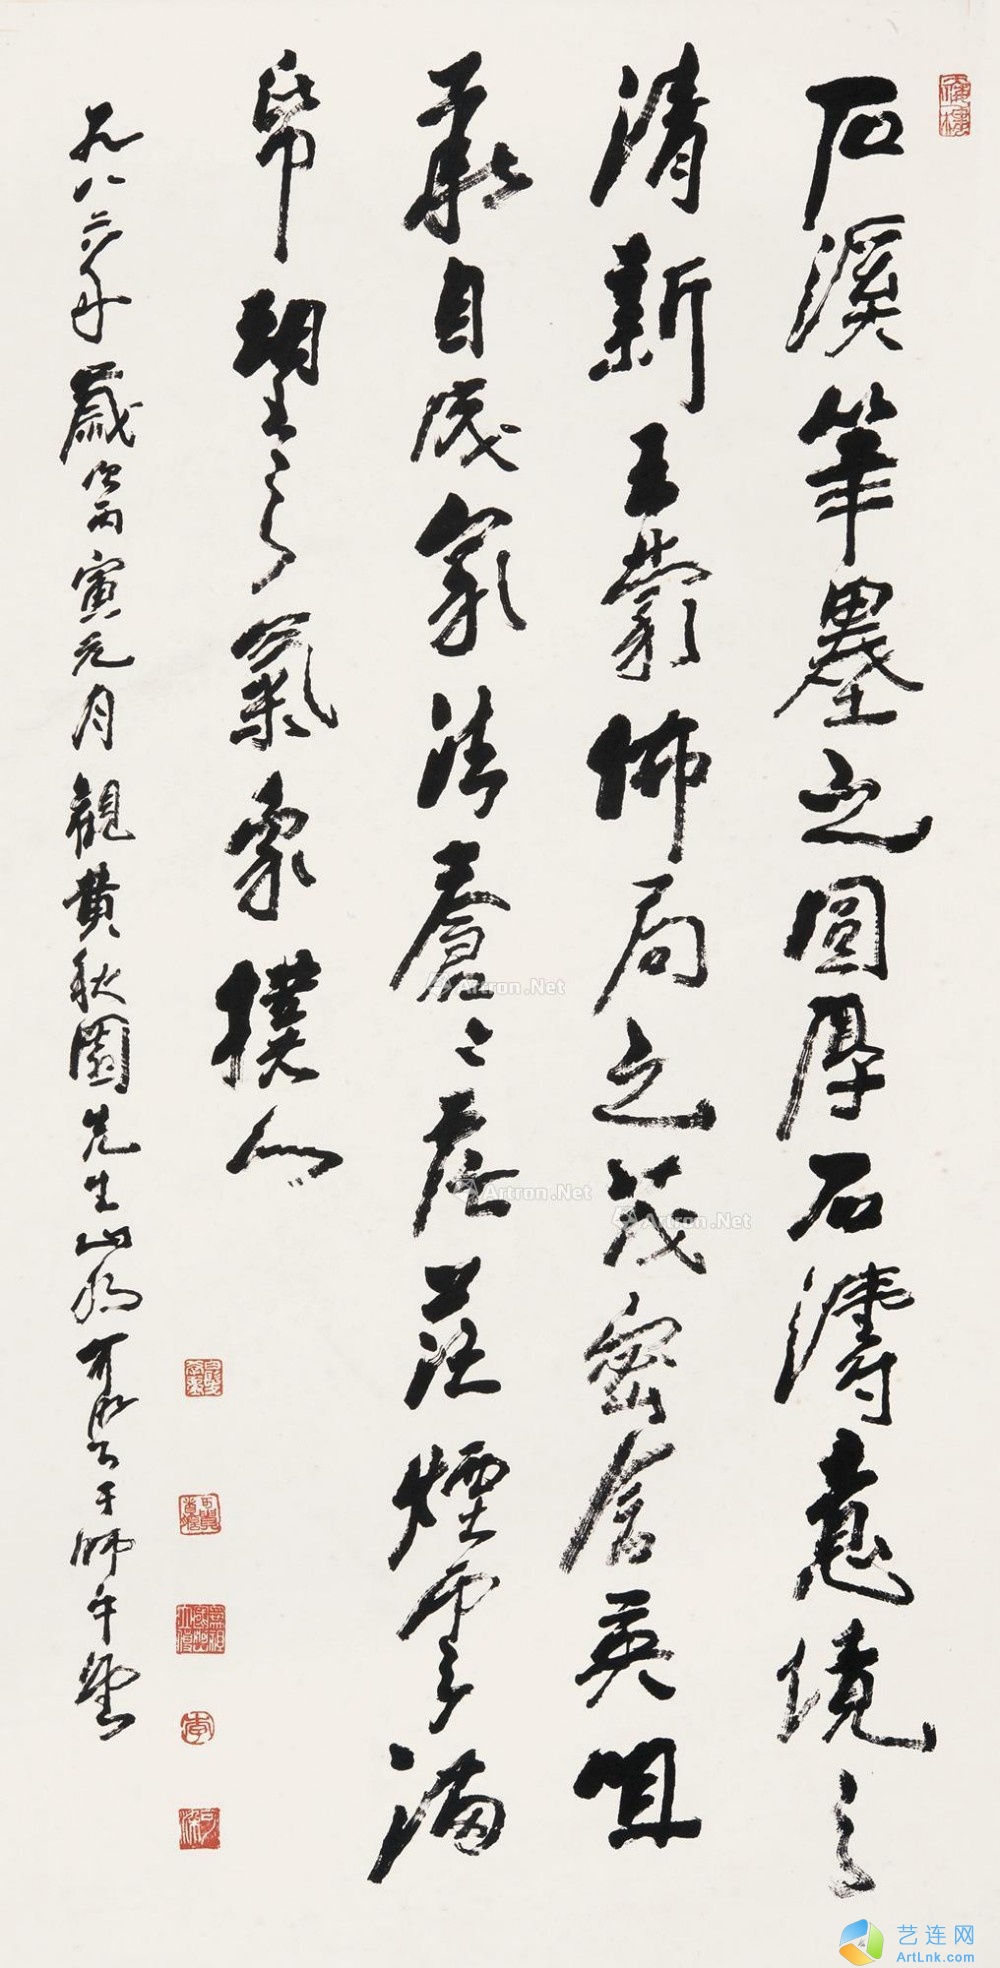 石溪筆墨之圓厚石濤意境之
清新王蒙佈局之茂密含英咀
華自成家法蒼〻茫茫煙雲滿
紙望之氣象撲人
一九八六年歲次丙寅元月觀黃秋園先生山水可染於師牛堂
Artron.Net
Artron.Net
Artron.Net
艺连网
ArtLnk.com